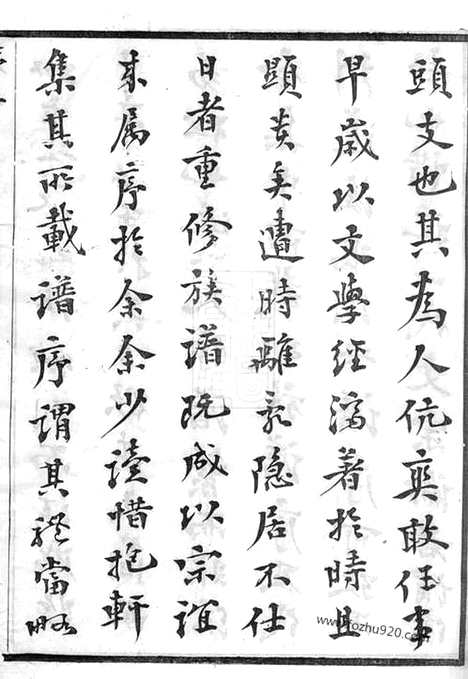 頭支也其為人伉爽敢任事
早歲以文學經濟著於時且
顯矣遭時離亂隱居不仕
日者重修族譜既成以宗誼
來属序於余余少讀惜抱軒
集其所載譜序謂其體當略
www.fozhu920.com